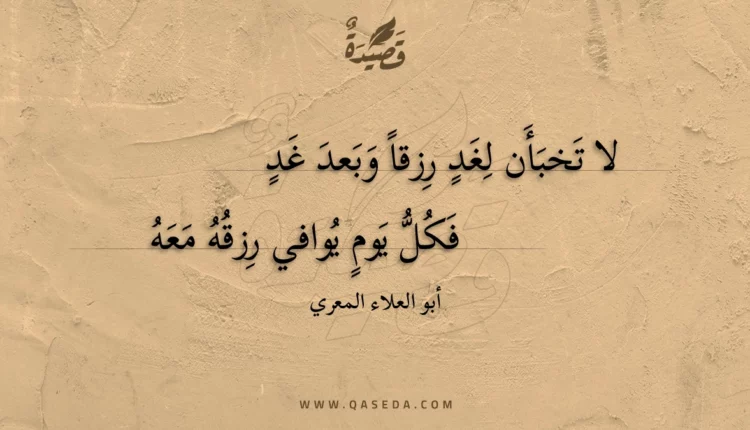 قَصِيدَةٌ
لا تَخبَأَن لِغَدٍ رِزقاً وَبَعدَ غَدٍ
فَكُلُّ يَومٍ يُوافي رِزقُهُ مَعَهُ
أبو العلاء المعري
WWW.QASEDA.COM